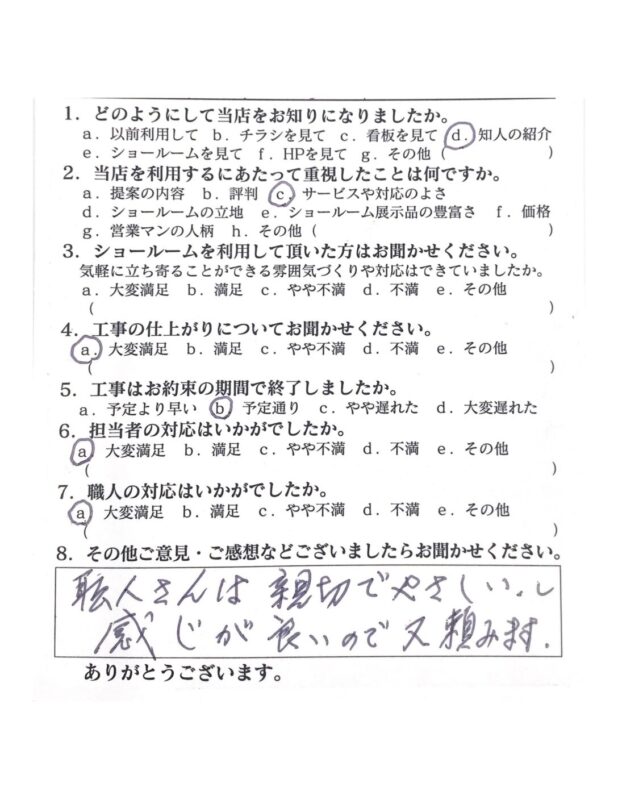 1．どのようにして当店をお知りになりましたか。
a．以前利用して b．チラシを見て c．看板を見て d．知人の紹介
e．ショールームを見て f．HPを見て g．その他 ( )
2．当店を利用するにあたって重視したことは何ですか。
a．提案の内容 b．評判 c．サービスや対応のよさ
d．ショールームの立地 e．ショールーム展示品の豊富さ f．価格
g．営業マンの人柄 h．その他 ( )
3．ショールームを利用して頂いた方はお聞かせください。
気軽に立ち寄ることができる雰囲気づくりや対応はできていましたか。
a．大変満足 b．満足 c．やや不満 d．不満 e．その他
( )
4．工事の仕上がりについてお聞かせください。
a．大変満足 b．満足 c．やや不満 d．不満 e．その他
( )
5．工事はお約束の期間で終了しましたか。
a．予定より早い b 予定通り c．やや遅れた d．大変遅れた
6．担当者の対応はいかがでしたか。
a 大変満足 b．満足 c．やや不満 d．不満 e．その他
( )
7．職人の対応はいかがでしたか。
a 大変満足 b．満足 c．やや不満 d．不満 e．その他
( )
8．その他ご意見・ご感想などございましたらお聞かせください。
職人さんは親切でやさしい、し
感じが良いので又頼みます.
ありがとうございます。